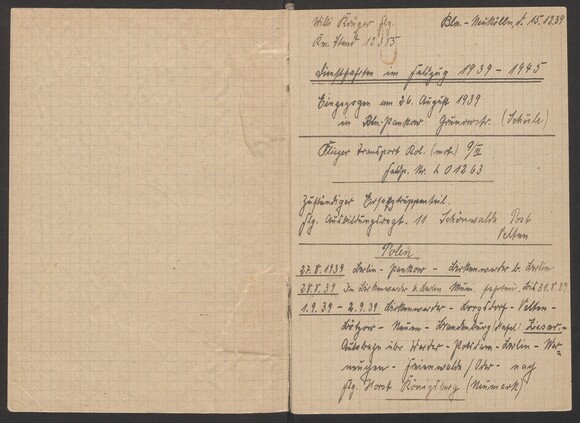 Willi Krüger flg.
Km. Stand 12335
Bln.-Neukölln, d. 15.12.39
Dienstfahrten im Feldzug 1939-1945
Eingezogen am 26. August 1939
in Bln-Pankow Grunowstr. (Schule)
Flieger Transport Kol. (mot.) 9/III
Feldp. Nr. L 01263
Zuständiger Ersatztruppenteil.
Flg. Ausbildungsregt. 11 Schönwalde Post
Velten
Polen
27.8.1939 Berlin-Pankow - Birkenwerder b. Berlin
28.8.39 In Birkenwerder b. Berlin bis 31.8.39
1.9.39 - 2.9.39 Birkenwerder - Borgsdorf - Velten -
Bötzow - Nauen - Brandenburg (Havel) Ziesar -
Autobahn über Werder - Potsdam - Berlin - Wer-
neuchen - Freienwalde / Oder - nach
Flg. Horst Königsberg (Neumark)